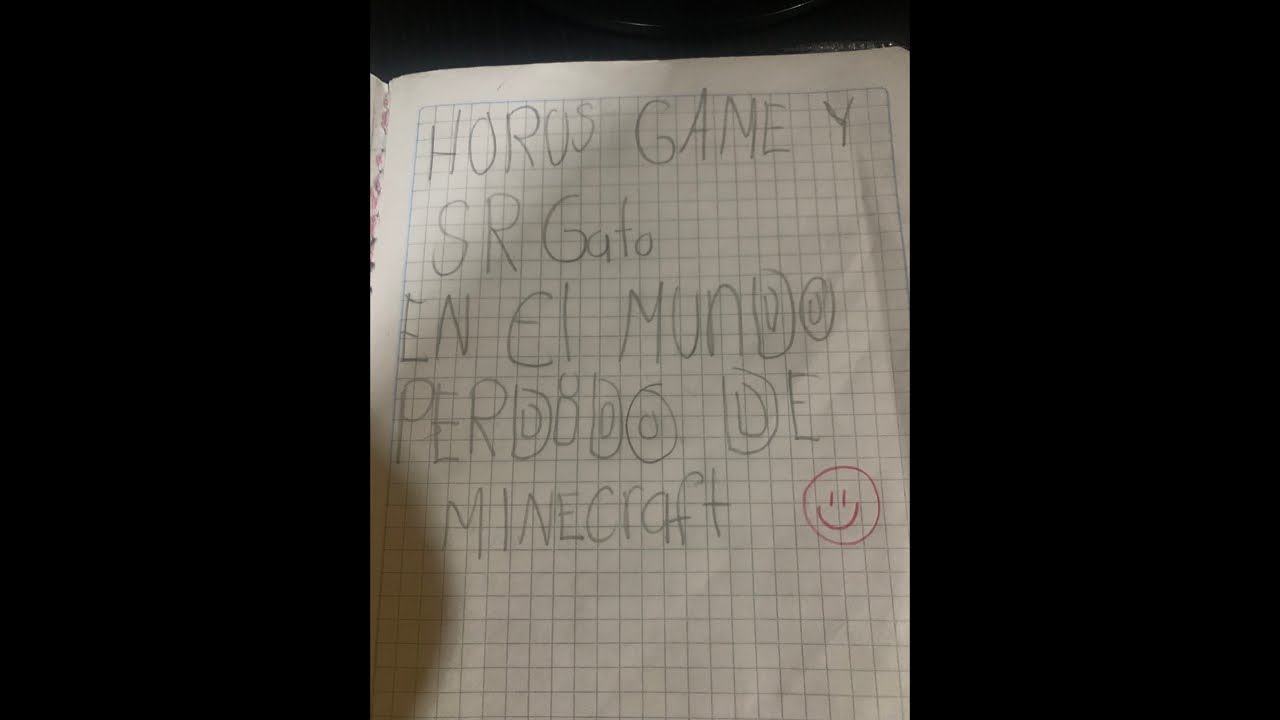 HOROS GAME Y
SR Gato
EN El MUNDO
PERDIDO DE
MINECraft